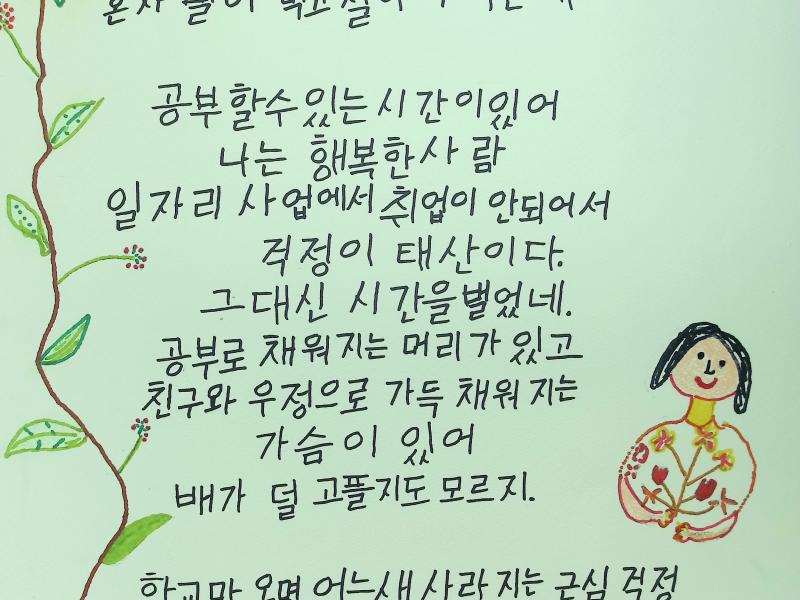 공부할수있는 시간이있어
나는 행복한사람
일자리 사업에서 취업이 안되어서
걱정이 태산이다.
그대신 시간을 벌었네.
공부로 채워지는 머리가 있고
친구와 우정으로 가득 채워지는
가슴이 있어
배가 덜 고플지도 모르지.
학교만 오면 어느새 사라지는 근심 걱정